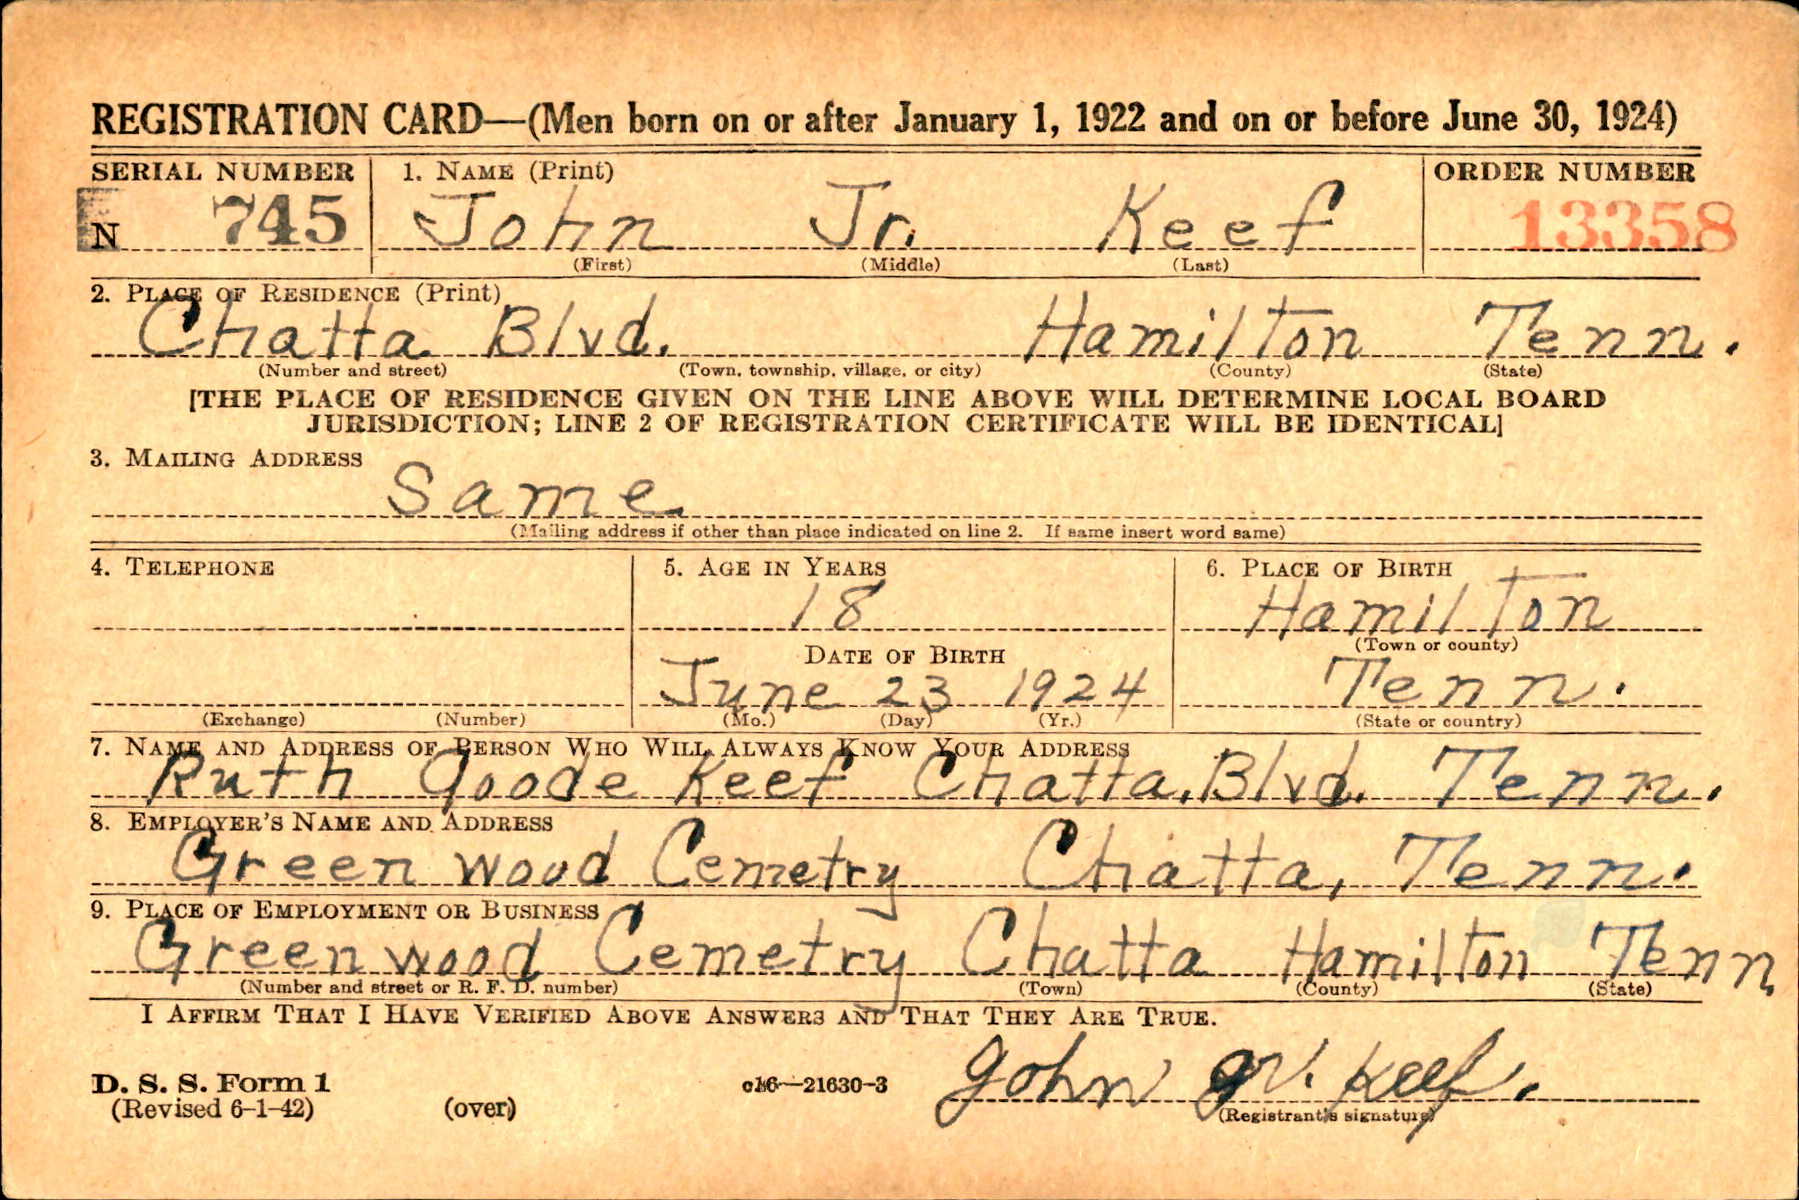 REGISTRATION CARD—(Men born on or after January 1, 1922 and on or before June 30, 1924)
SERIAL NUMBER 1. NAME (Print) ORDER NUMBER
N 745 John Jr. Keef 13358
(First) (Middle) (Last)
2. PLACE OF RESIDENCE (Print)
Chatta Blvd. Hamilton Tenn.
(Number and street) (Town, township, village, or city) (County) (State)
[THE PLACE OF RESIDENCE GIVEN ON THE LINE ABOVE WILL DETERMINE LOCAL BOARD
JURISDICTION; LINE 2 OF REGISTRATION CERTIFICATE WILL BE IDENTICAL]
3. MAILING ADDRESS
Same
(Mailing address if other than place indicated on line 2. If same insert word same)
4. TELEPHONE 5. AGE IN YEARS 6. PLACE OF BIRTH
18 Hamilton
(Town or county)
DATE OF BIRTH
June 23 1924 Tenn.
(Exchange) (Number) (Mo.) (Day) (Yr.) (State or country)
7. NAME AND ADDRESS OF PERSON WHO WILL ALWAYS KNOW YOUR ADDRESS
Ruth Goode Keef Chatta. Blvd. Tenn.
8. EMPLOYER'S NAME AND ADDRESS
Green wood Cemetry Chatta, Tenn.
9. PLACE OF EMPLOYMENT OR BUSINESS
Green wood Cemetry Chatta Hamilton Tenn.
(Number and street or R. F. D. number) (Town) (County) (State)
I AFFIRM THAT I HAVE VERIFIED ABOVE ANSWERS AND THAT THEY ARE TRUE.
D. S. S. Form 1 c16—21630-3 John Jr. Keef.
(Revised 6-1-42) (over) (Registrant's signature)